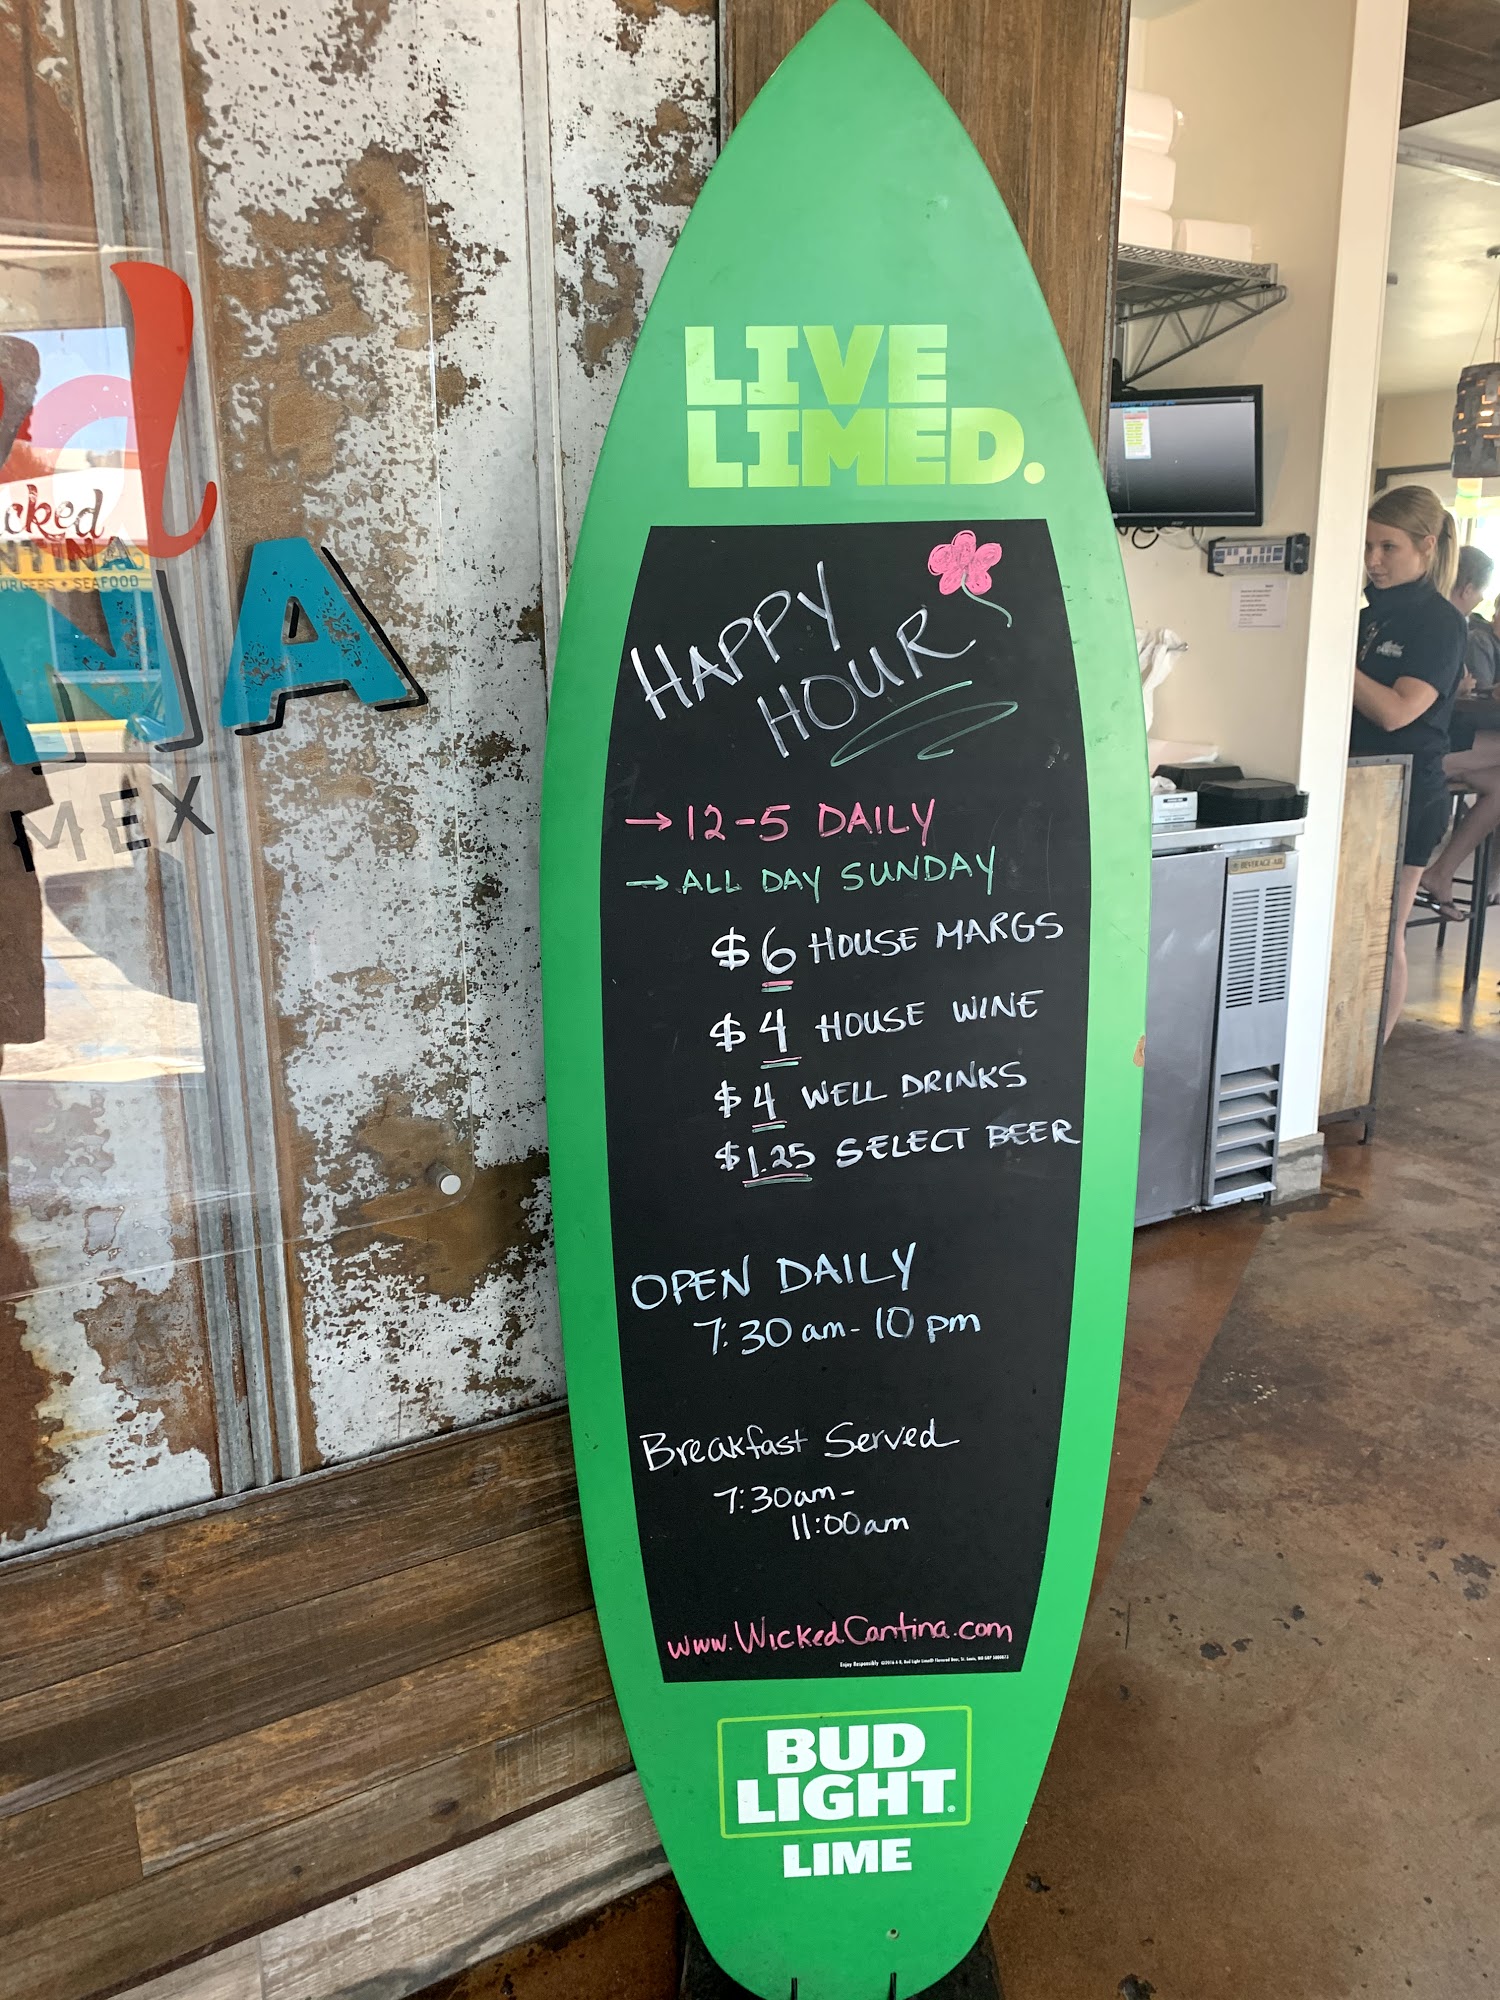 LIVE
LIMED.
HAPPY
HOUR
→ 12-5 DAILY
→ ALL DAY SUNDAY
$6 HOUSE MARGS
$4 HOUSE WINE
$4 WELL DRINKS
$1.25 SELECT BEER
OPEN DAILY
7:30am-10pm
Breakfast Served
7:30am-
11:00am
www.WickedCantina.com
Enjoy Responsibly
BUD
LIGHT®
LIME
d
NA
MEX
cked
NTINA
URGERS • SEAFOOD
BEVERAGE-AIR